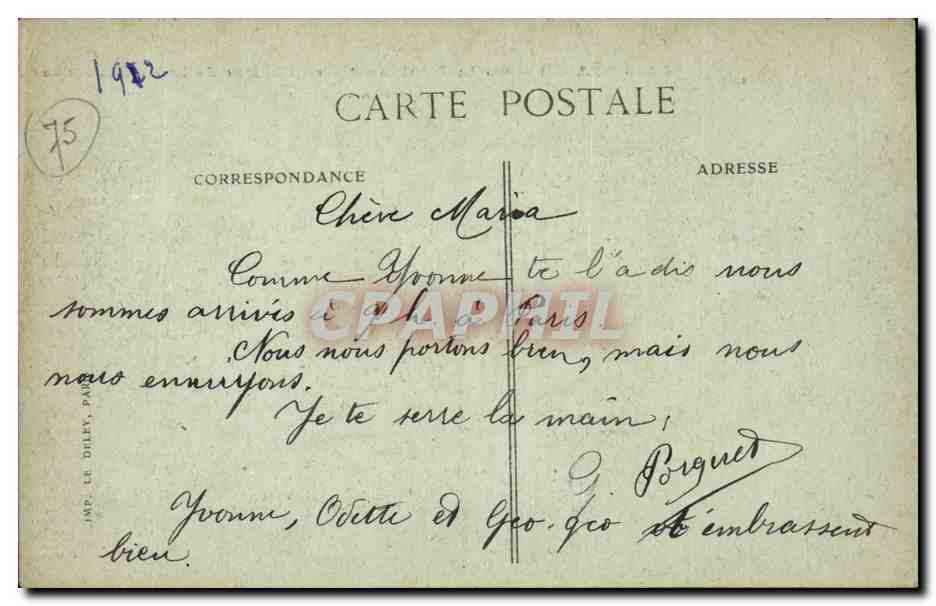 1912
75
CARTE POSTALE
CORRESPONDANCE
ADRESSE
Chère Maria
Comme Yvonne te l'a dis nous
sommes arrivés à 9 h à Paris.
CPAPHIL
Nous nous portons bien, mais nous
nous ennuyons.
Je te serre la main,
G Porquet
Yvonne, Odette et Géo-géo t'embrassent
bien.
IMP. LE DELEY, PAR